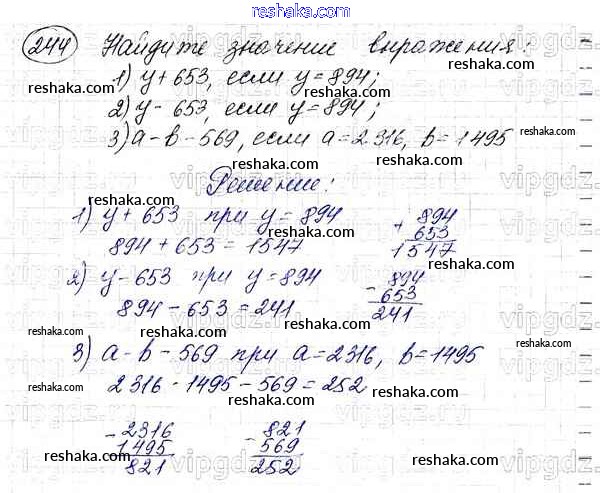 reshaka.com
244 Найдите значение выражения:
1) y + 653, если y = 894;
2) y - 653, если y = 894;
3) a - b - 569, если a = 2316, b = 1495
Решение:
1) y + 653 при y = 894
894 + 653 = 1547
+ 894
653
1547
2) y - 653 при y = 894
894 - 653 = 241
- 894
653
241
3) a - b - 569 при a = 2316, b = 1495
2316 - 1495 - 569 = 252
- 2316
1495
821
- 821
569
252